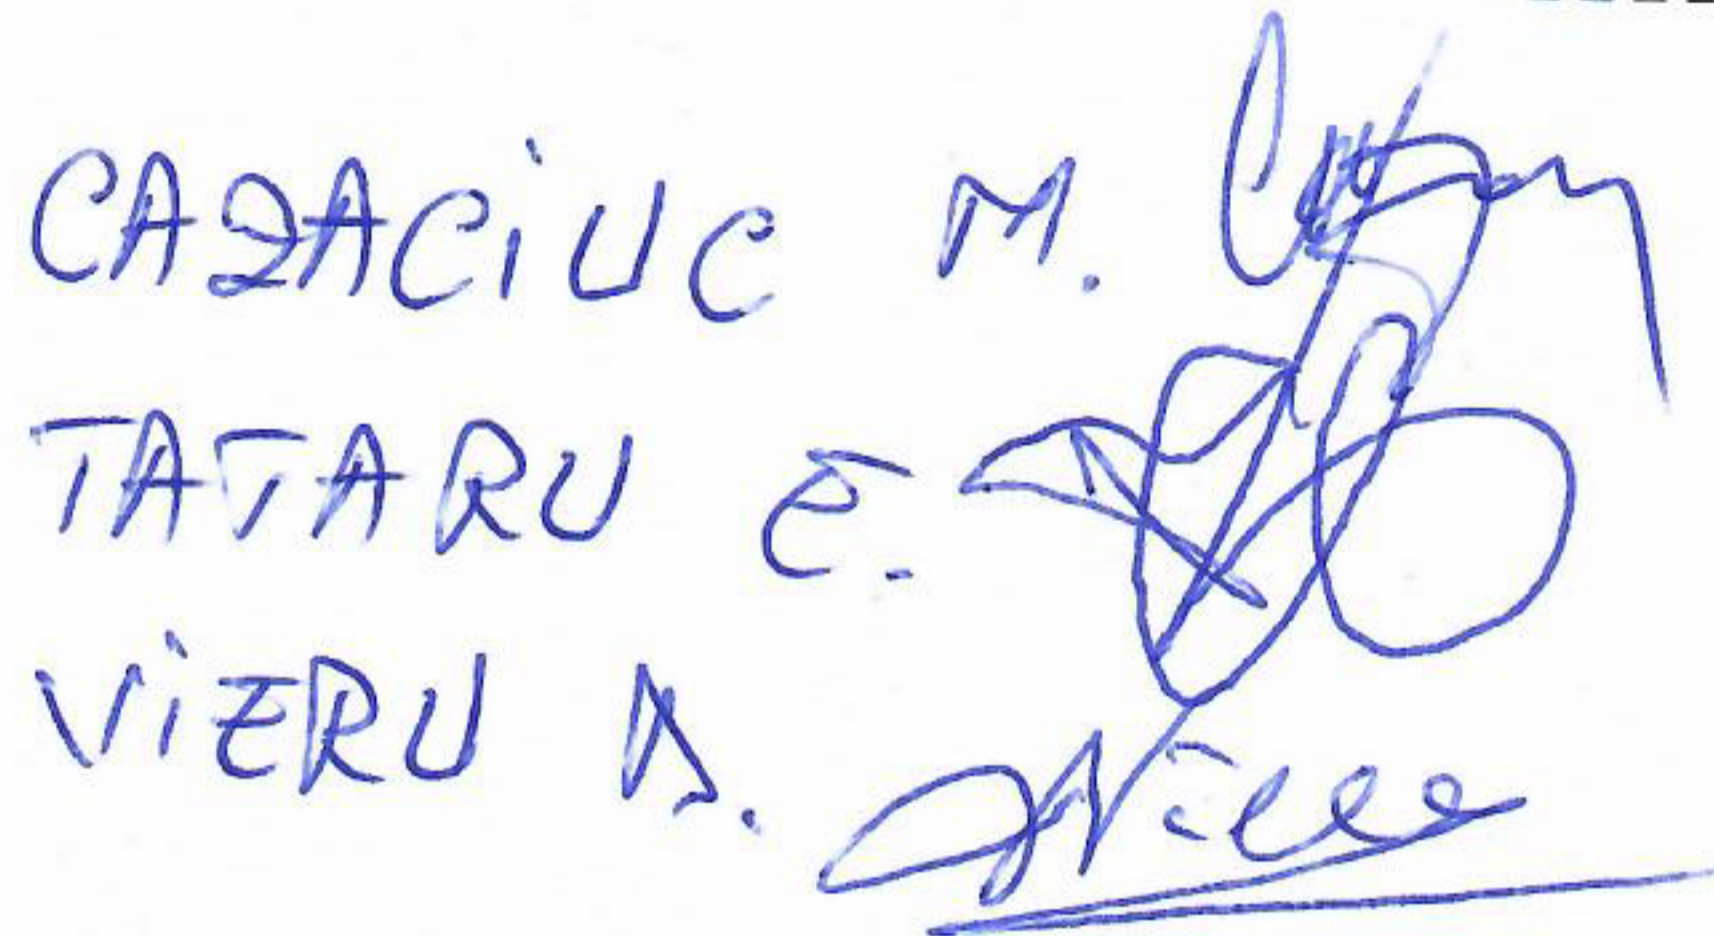 CAZACIUC M.
TATARU E.
VIERU A.